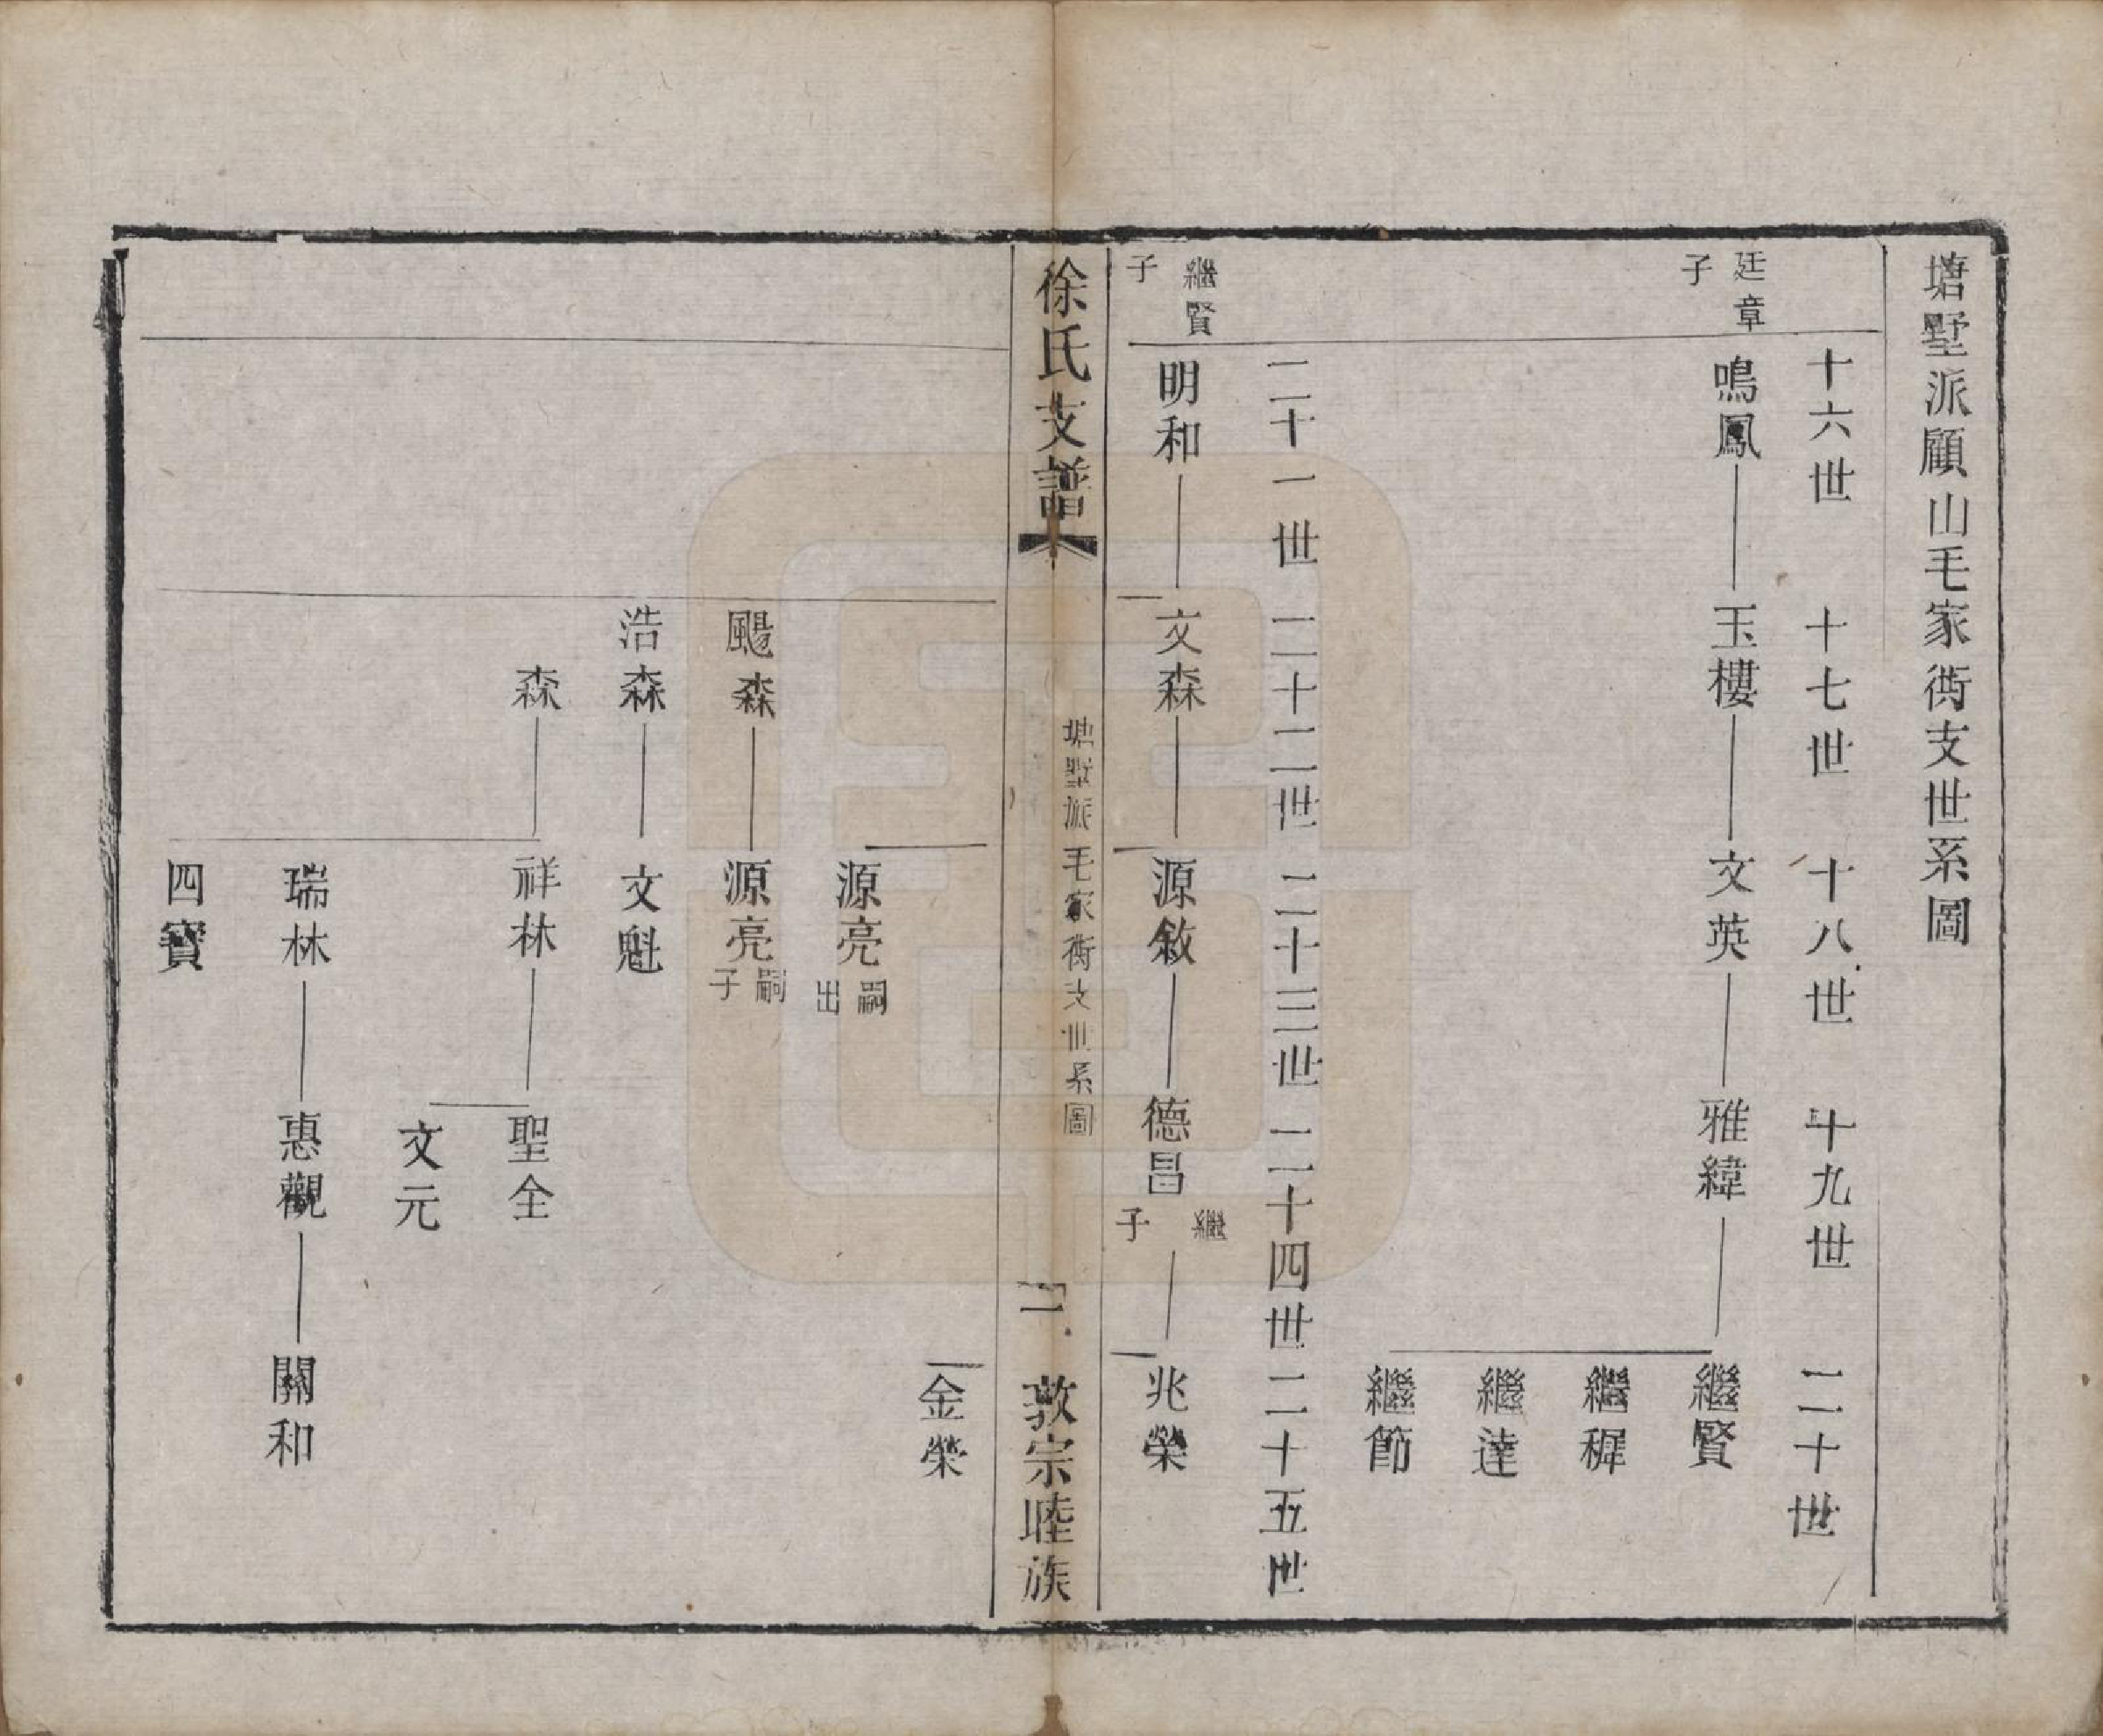 塘墅派顧山毛家衖支世系圖
十六世 十七世 十八世 十九世 二十世
廷章子
鳴鳳 玉樓 文英 雅緯 繼賢
繼穉
繼達
繼節
二十一世 二十二世 二十三世 二十四世 二十五世
繼賢子
明和 文森 源敘 德昌 繼子 兆榮
徐氏支譜 塘墅派毛家衖支世系圖 一 敦宗睦族
金榮
源亮 嗣出
颺森 源亮 嗣子
浩森 文魁
森 祥林 聖全
文元
瑞林 惠觀 關和
四寶